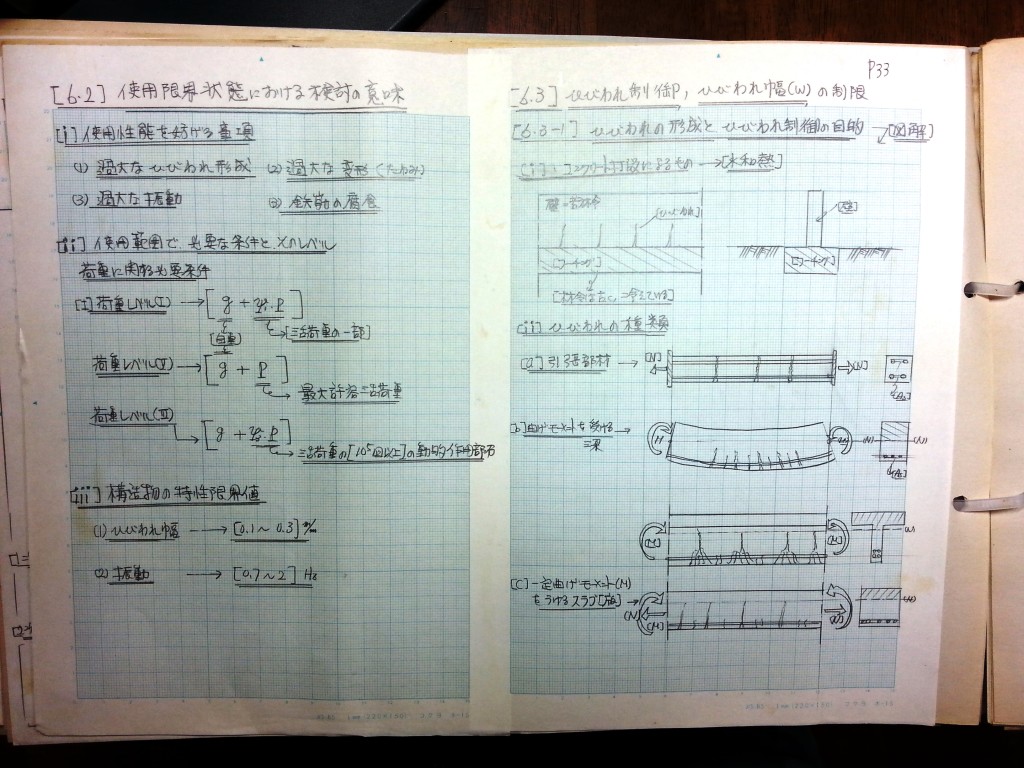 [6.2] 使用限界状態における検討の意味
[i] 使用性能を妨げる事項
(1) 過大なひびわれ形成 (2) 過大な変形 (たわみ)
(3) 過大な振動 (3) 鉄筋の腐食
[ii] 使用範囲で、必要な条件と、そのレベル
荷重に関する必要条件
[I] 荷重レベル(I) → [g + ψ・p]
[自重] [活荷重の一部]
荷重レベル(II) → [g + p]
最大許容活荷重
荷重レベル(III)
[g + ψ・p]
活荷重の[10⁵回以上]の動的作用部分
[iii] 構造物の特性限界値
(1) ひびわれ幅 → [0.1〜0.3] m/m
(2) 振動 → [0.7〜2] Hz
P33
[6.3] ひびわれ制御, ひびわれ幅(W)の制限
[6.3-1] ひびわれの形成と ひびわれ制御の目的 [図解]
(i) : コンクリート打設によるもの → [水和熱]
[ひびわれ]
[壁]
[フーチング] [フーチング]
(ii) ひびわれの種類
[a] 引張部材 → [N] [N]
[As]
[b] 曲げモーメントを受ける → M
梁
[As]
[M] [M]
[C] 一定曲げモーメント(M)
をうけるスラブ[版] →
[N] [M]